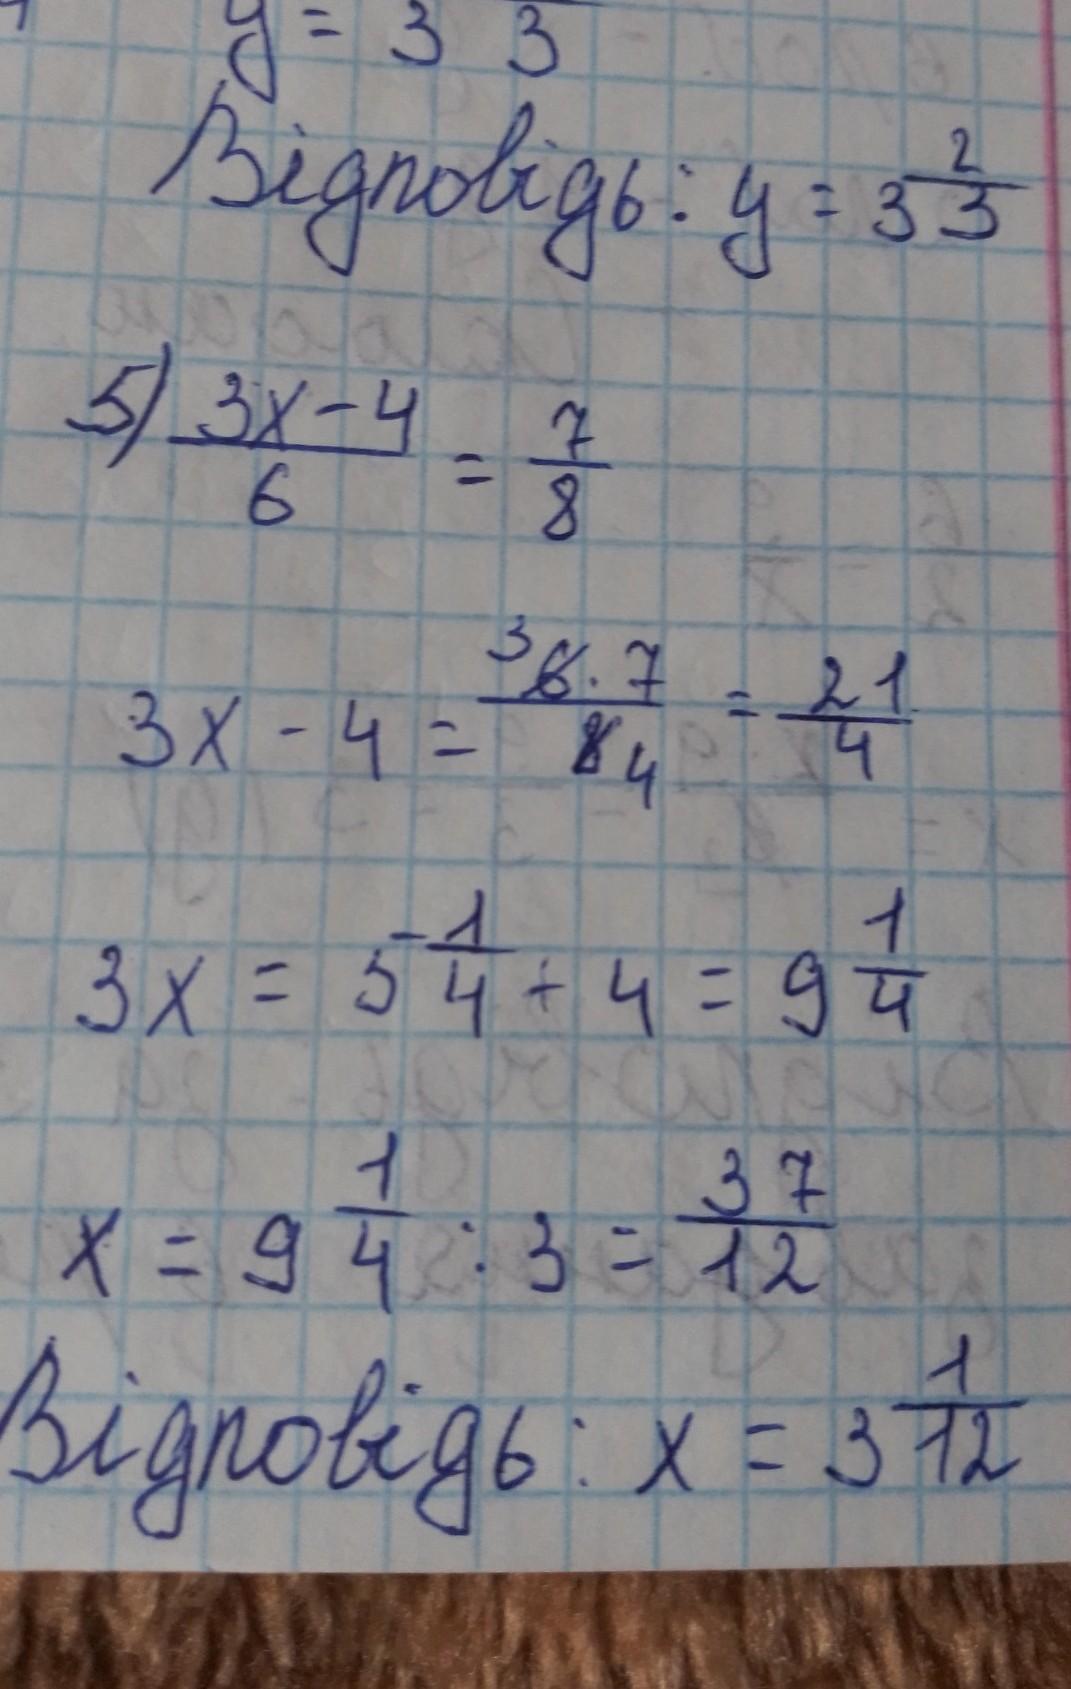 y = 3 3
Відповідь: y = 3 2/3
5) (3x - 4)/6 = 7/8
3x - 4 = (3 6 · 7)/(8 4) = 21/4
3x = 5 1/4 + 4 = 9 1/4
x = 9 1/4 : 3 = 37/12
Відповідь: x = 3 1/12